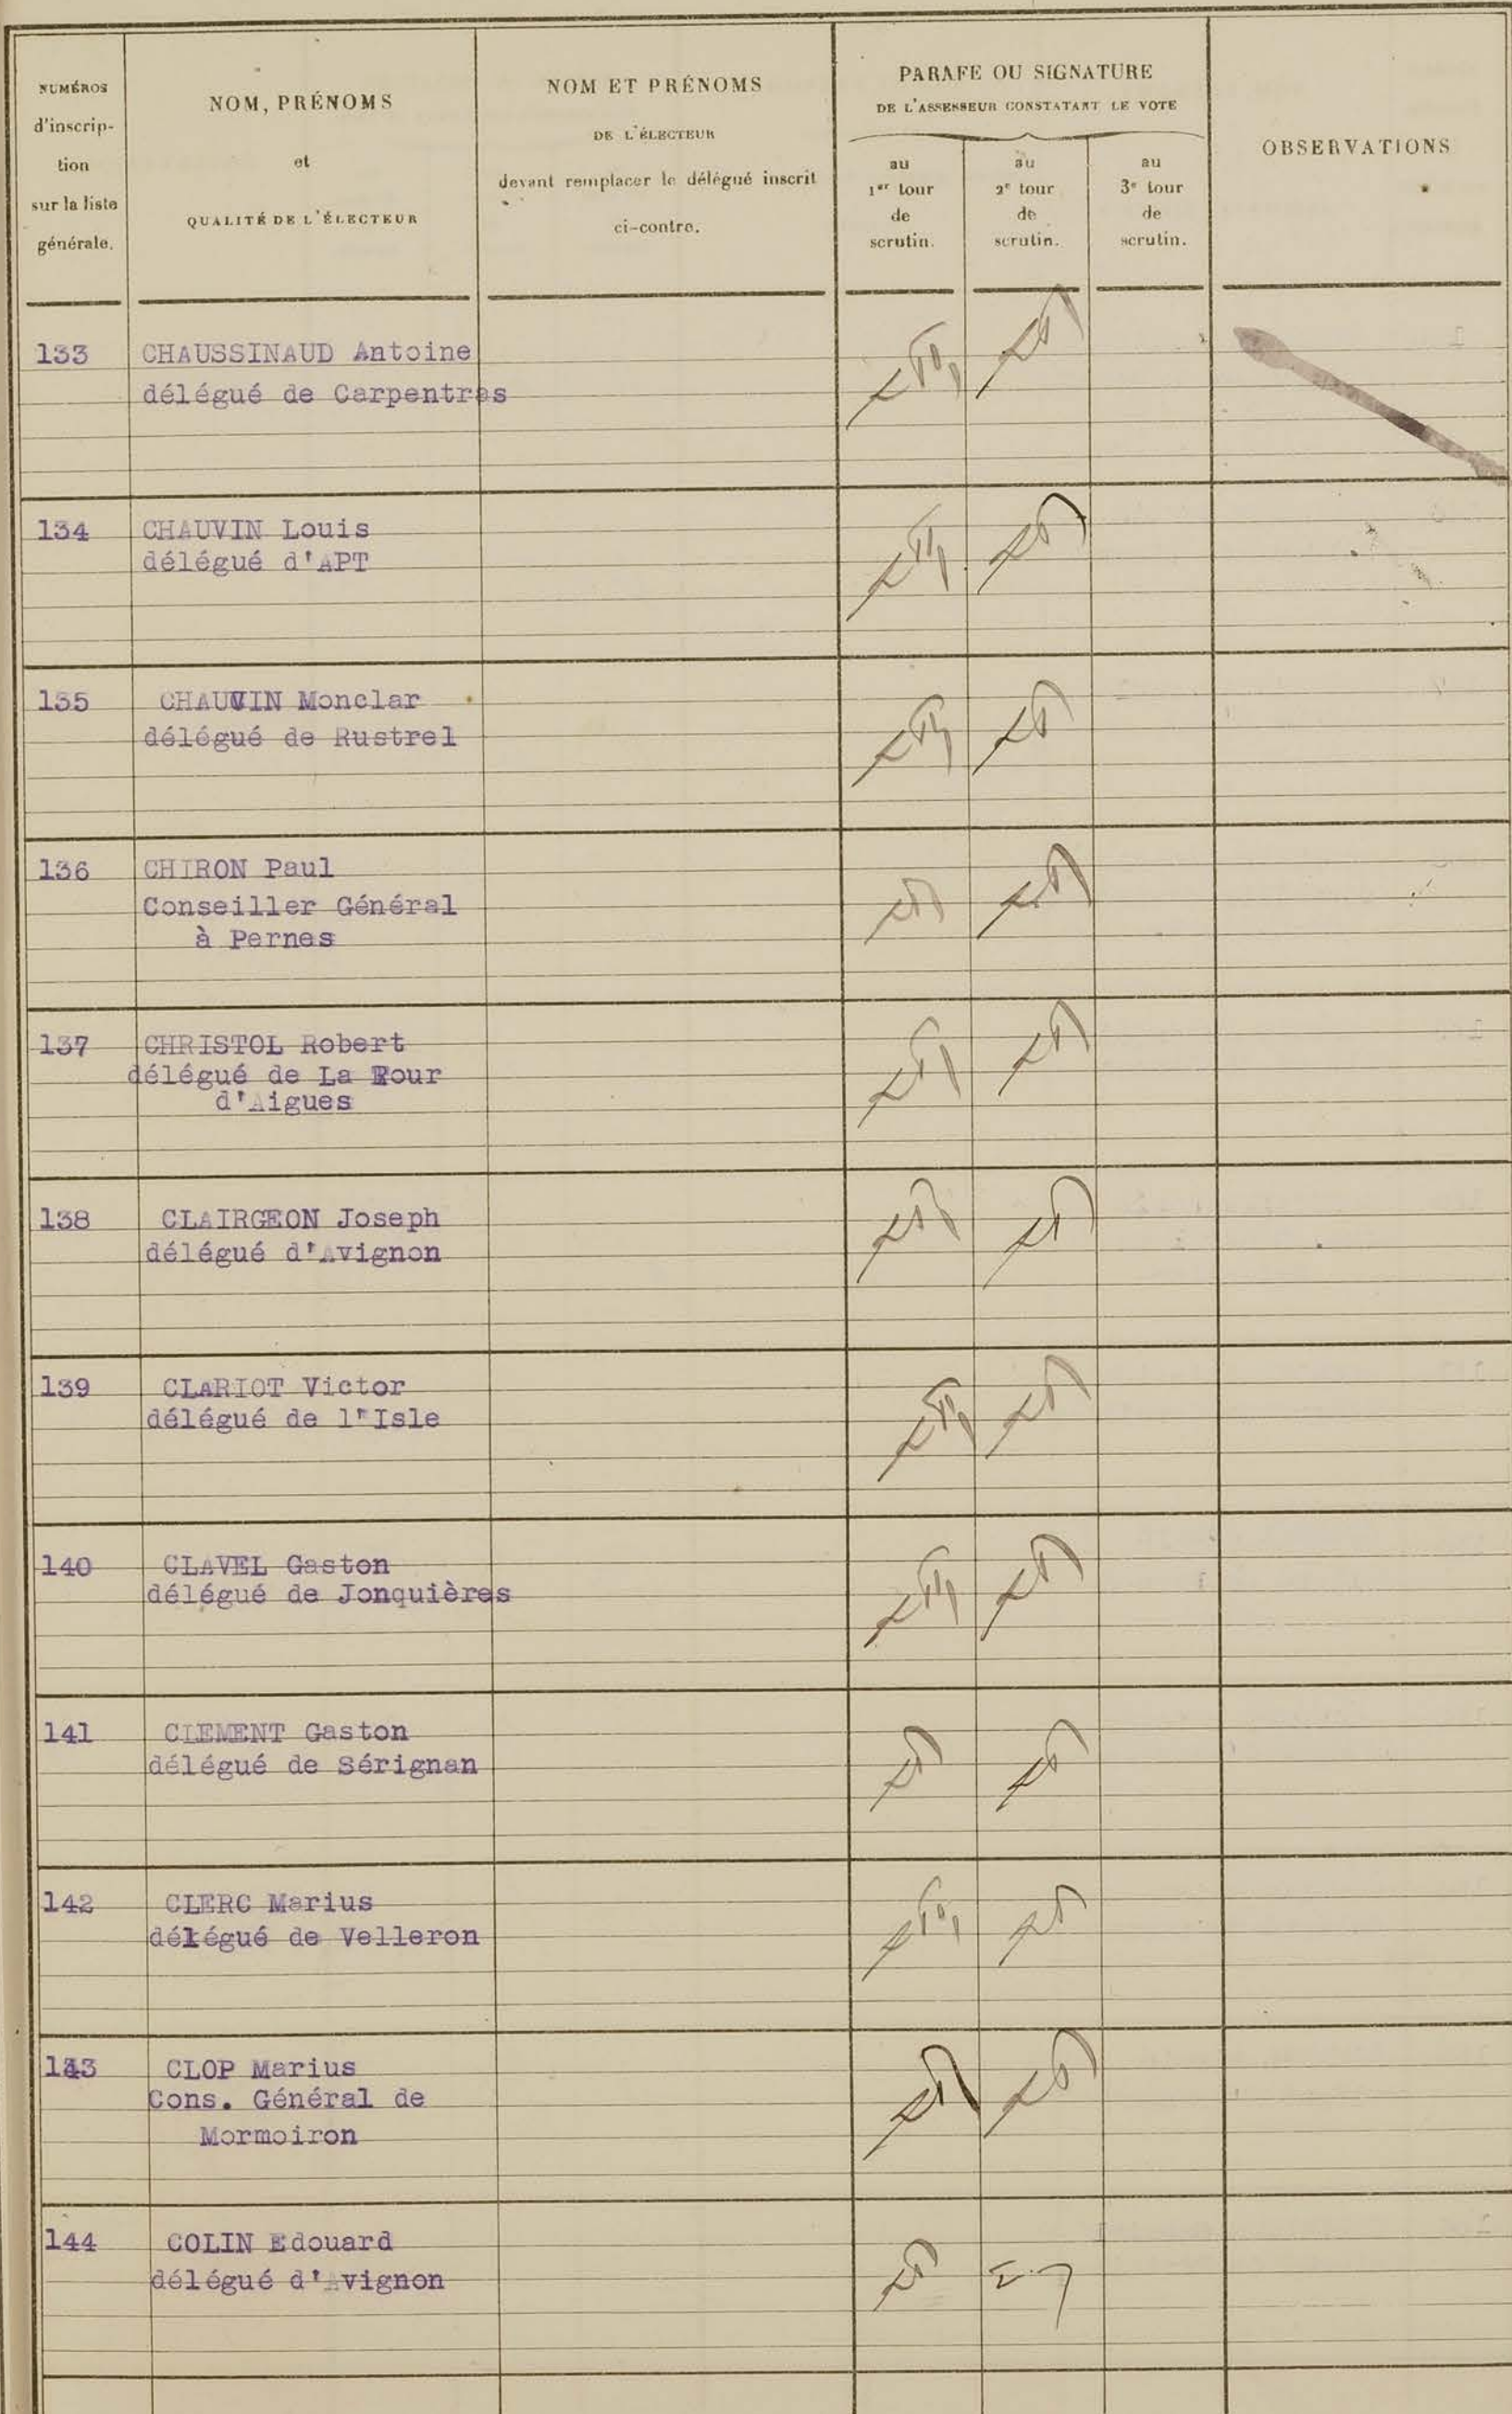 NUMÉROS
d'inscrip-
tion
sur la liste
générale.
NOM, PRÉNOMS
et
QUALITÉ DE L'ÉLECTEUR
NOM ET PRÉNOMS
DE L'ÉLECTEUR
devant remplacer le délégué inscrit
ci-contre.
PARAFE OU SIGNATURE
DE L'ASSESSEUR CONSTATANT LE VOTE
au
1er tour
de
scrutin.
au
2e tour
de
scrutin.
au
3e tour
de
scrutin.
OBSERVATIONS
133 CHAUSSINAUD Antoine
délégué de Carpentras
134 CHAUVIN Louis
délégué d'APT
135 CHAUVIN Monclar
délégué de Rustrel
136 CHIRON Paul
Conseiller Général
à Pernes
137 CHRISTOL Robert
délégué de La Tour
d'Aigues
138 CLAIRGEON Joseph
délégué d'Avignon
139 CLARIOT Victor
délégué de l'Isle
140 CLAVEL Gaston
délégué de Jonquières
141 CLEMENT Gaston
délégué de Sérignan
142 CLERC Marius
délégué de Velleron
143 CLOP Marius
Cons. Général de
Mormoiron
144 COLIN Edouard
délégué d'Avignon